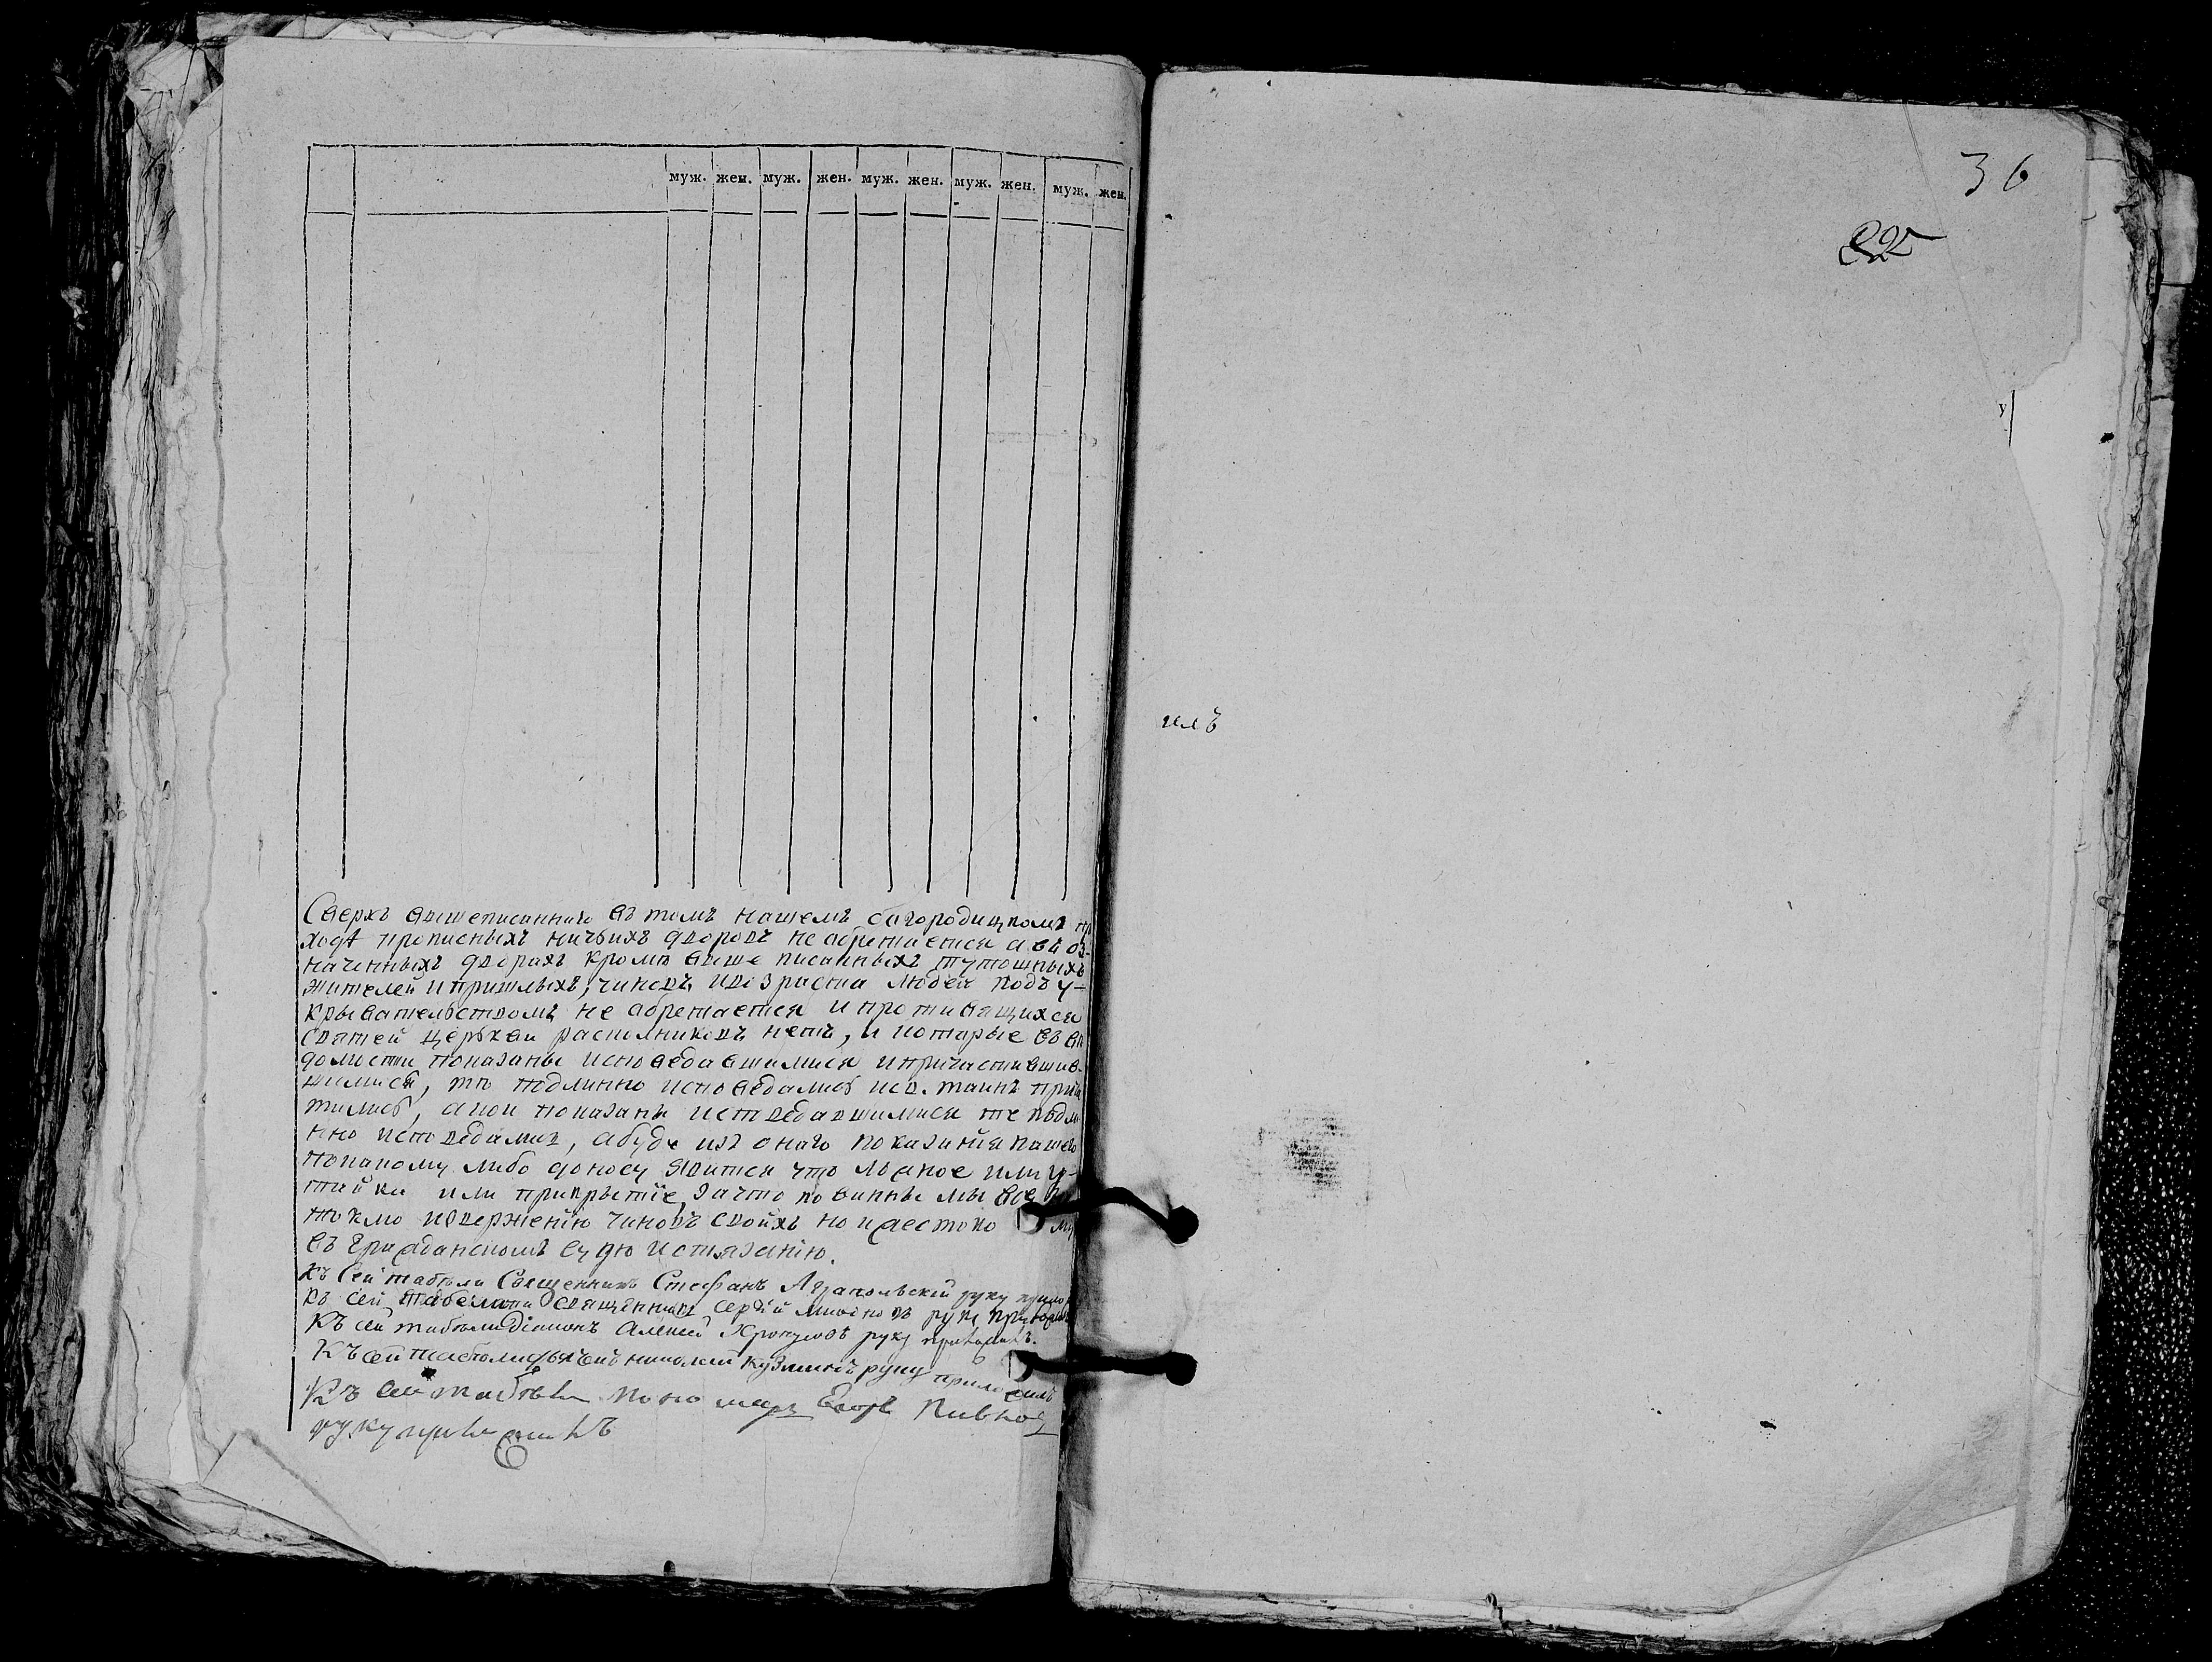 муж. жен. муж. жен. муж. жен. муж. жен. муж. жен.
Сверхъ вышеписаннаго въ томъ нашемъ богородицкомъ пр
ходѣ прописныхъ ничьихъ дворовъ не обретается а въ оз-
наченныхъ дворахъ кромѣ выше писанныхъ тутошныхъ
жителей и пришлыхъ, чиновъ и возраста людей подъ у-
крывательствомъ не обретается и противящихся
святей церькви раскольниковъ нетъ, и которые въ ве
домости показаны исповедавшимися и причастившив-
шимися, тѣ подлинно исповедались и св. таинъ прич
тились, а кои показаны исповедавшимися те подли
нно исповедались, а буде изъ онаго показания нашего
по какому либо доносу явится что ложное или у-
тайка или прикрытіе, за что повинны мы все не
токмо извержению чиновъ своихъ но и жестоко му
въ гражданскомъ суде истязанию.
Къ сей табели Священникъ Стефанъ руку прило
Къ сей табели священникъ Сергей руку приложилъ
Къ сей табели діаконъ Алексей руку приложилъ.
Къ сей табели дьячекъ николай кузминъ руку приложилъ
Къ сей табели пономарь Егоръ
руку приложилъ
36
илъ
у